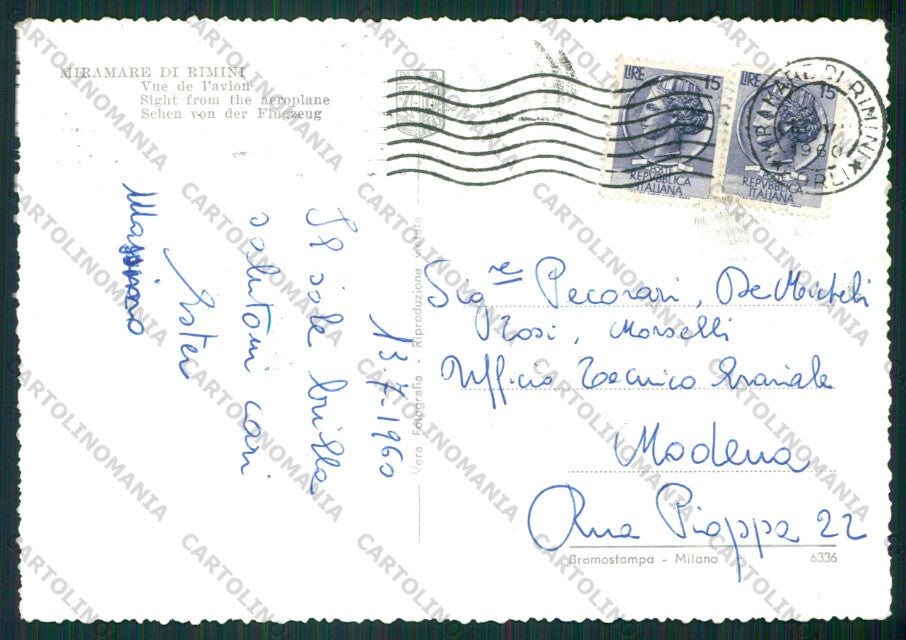 MIRAMARE DI RIMINI
Vue de l'avion
Sight from the aeroplane
Sehen von der Flugzeug
LIRE 15
POSTE
REPVBBLICA
ITALIANA
LIRE 15
REPVBBLICA
ITALIANA
MIRAMARE DI RIMINI
1960
13.7.1960
Il sole brilla
saluto
cari
Ester
Massimo
Vera Fotografia - Riproduzione vietata
Sigre Pecorari, De Micheli
Rosi, Morselli
Ufficio Tecnico Erariale
Modena
Rua Pioppa 22
Bromostampa - Milano
6336
CARTOLINOMANIA